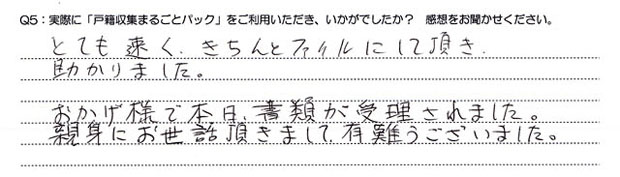 Q5：実際に「戸籍収集まるごとパック」をご利用いただき、いかがでしたか？ 感想をお聞かせください。
とても速く、きちんとファイルにして頂き、
助かりました。
おかげ様で本日、書類が受理されました。
親身にお世話頂きまして、有難うございました。